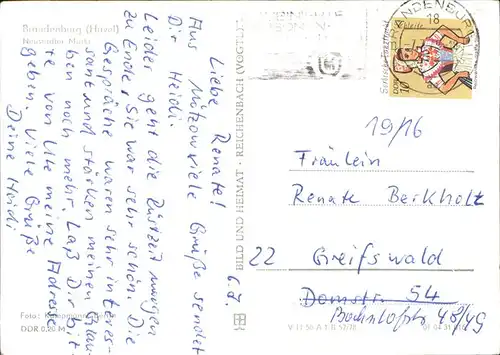 Brandenburg (Havel)
Neustadter Markt
6.7.
Liebe Renate!
Aus Mützow viele Grüße sendet
Dir Heidi.
Leider geht die Rüstzeit morgen
zu Ende. Sie war sehr schön. Die
Gespräche waren sehr interes-
sant und stärken meinen Glau-
ben noch mehr. Laß Dir bit-
te von Ute meine Adresse
geben. Viele Grüße
Deine Heidi
Foto:
DDR 0,20 M
BILD UND HEIMAT · REICHENBACH (VOGTL)
V 11 50 A 1 B 52/78
01 04 31
BRANDENBURG
18
DDR
10
19/16
Fräulein
Renate Berkholz
22 Greifswald
Domstr. 54
Bahnhofstr. 48/49